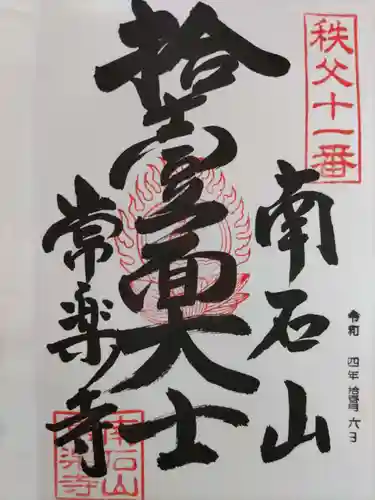 秩父十一番
南石山
拾壹面大士
常楽寺
令和 四年 拾壱月 六日
南石山
常楽寺